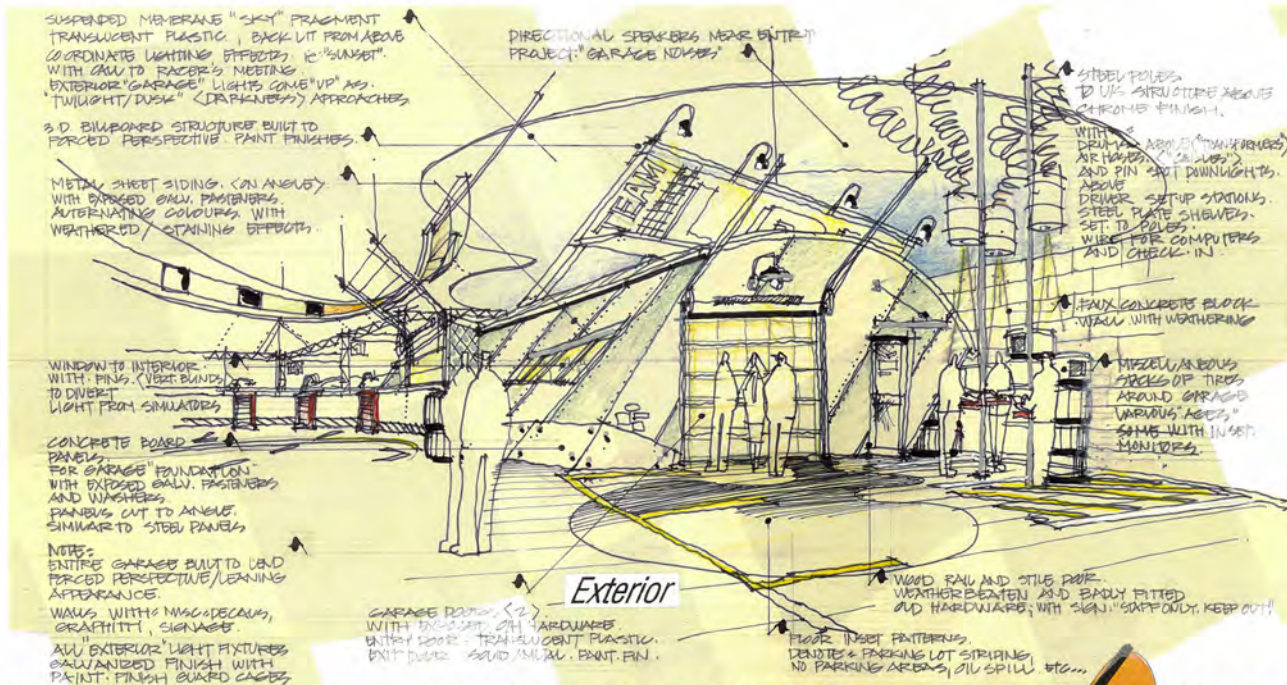 SUSPENDED MEMBRANE "SKY" FRAGMENT
TRANSLUCENT PLASTIC, BACK LIT FROM ABOVE
COORDINATE LIGHTING EFFECTS. ie: "SUNSET".
WITH CALL TO RACER'S MEETING.
EXTERIOR "GARAGE" LIGHTS COME "UP" AS.
"TWILIGHT/DUSK" <DARKNESS> APPROACHES
3-D. BILLBOARD STRUCTURE BUILT TO
FORCED PERSPECTIVE. PAINT FINISHES.
METAL SHEET SIDING. <ON ANGLE>
WITH EXPOSED GALV. FASTENERS.
ALTERNATING COLOURS. WITH
WEATHERED / STAINING EFFECTS.
WINDOW TO INTERIOR.
WITH FINS. <VERT. BLINDS>
TO DIVERT
LIGHT FROM SIMULATORS
CONCRETE BOARD
PANELS.
FOR GARAGE" FOUNDATION
WITH EXPOSED GALV. FASTENERS
AND WASHERS.
PANELS CUT TO ANGLE.
SIMILAR TO STEEL PANELS
NOTE:
ENTIRE GARAGE BUILT TO LEND
FORCED PERSPECTIVE/LEANING
APPEARANCE.
WALLS WITH: MISC. DECALS,
GRAPHITTI, SIGNAGE.
ALL "EXTERIOR" LIGHT FIXTURES
GALVANIZED FINISH WITH
PAINT. FINISH GUARD CAGES
DIRECTIONAL SPEAKERS NEAR ENTRY
PROJECT: "GARAGE NOISES"
TEAM
STEEL POLES
TO U/S STRUCTURE ABOVE
CHROME FINISH.
WITH
DRUMS ABOVE ("TRANSFORMERS)
AIR HOSES. <"CABLES">
AND PIN SPOT DOWNLIGHTS.
ABOVE
DRIVER SET-UP STATIONS.
STEEL PLATE SHELVES.
SET TO POLES.
WIRE FOR COMPUTERS
AND CHECK-IN
FAUX CONCRETE BLOCK
WALL WITH WEATHERING
MISCELLANEOUS
STACKS OF TIRES
AROUND GARAGE
VARIOUS "AGES"
SOME WITH INSET.
MONITORS.
Exterior
GARAGE DOORS <2>
WITH EXPOSED OH HARDWARE.
ENTRY DOOR - TRANSLUCENT PLASTIC.
EXIT DOOR - SOLID PAINT. FIN.
WOOD RAIL AND STILE DOOR.
WEATHERBEATEN AND BADLY FITTED
OLD HARDWARE; WITH SIGN: "STAFF ONLY. KEEP OUT"
FLOOR INSET PATTERNS.
DENOTE PARKING LOT STRIPING,
NO PARKING AREAS, OIL SPILL ETC...